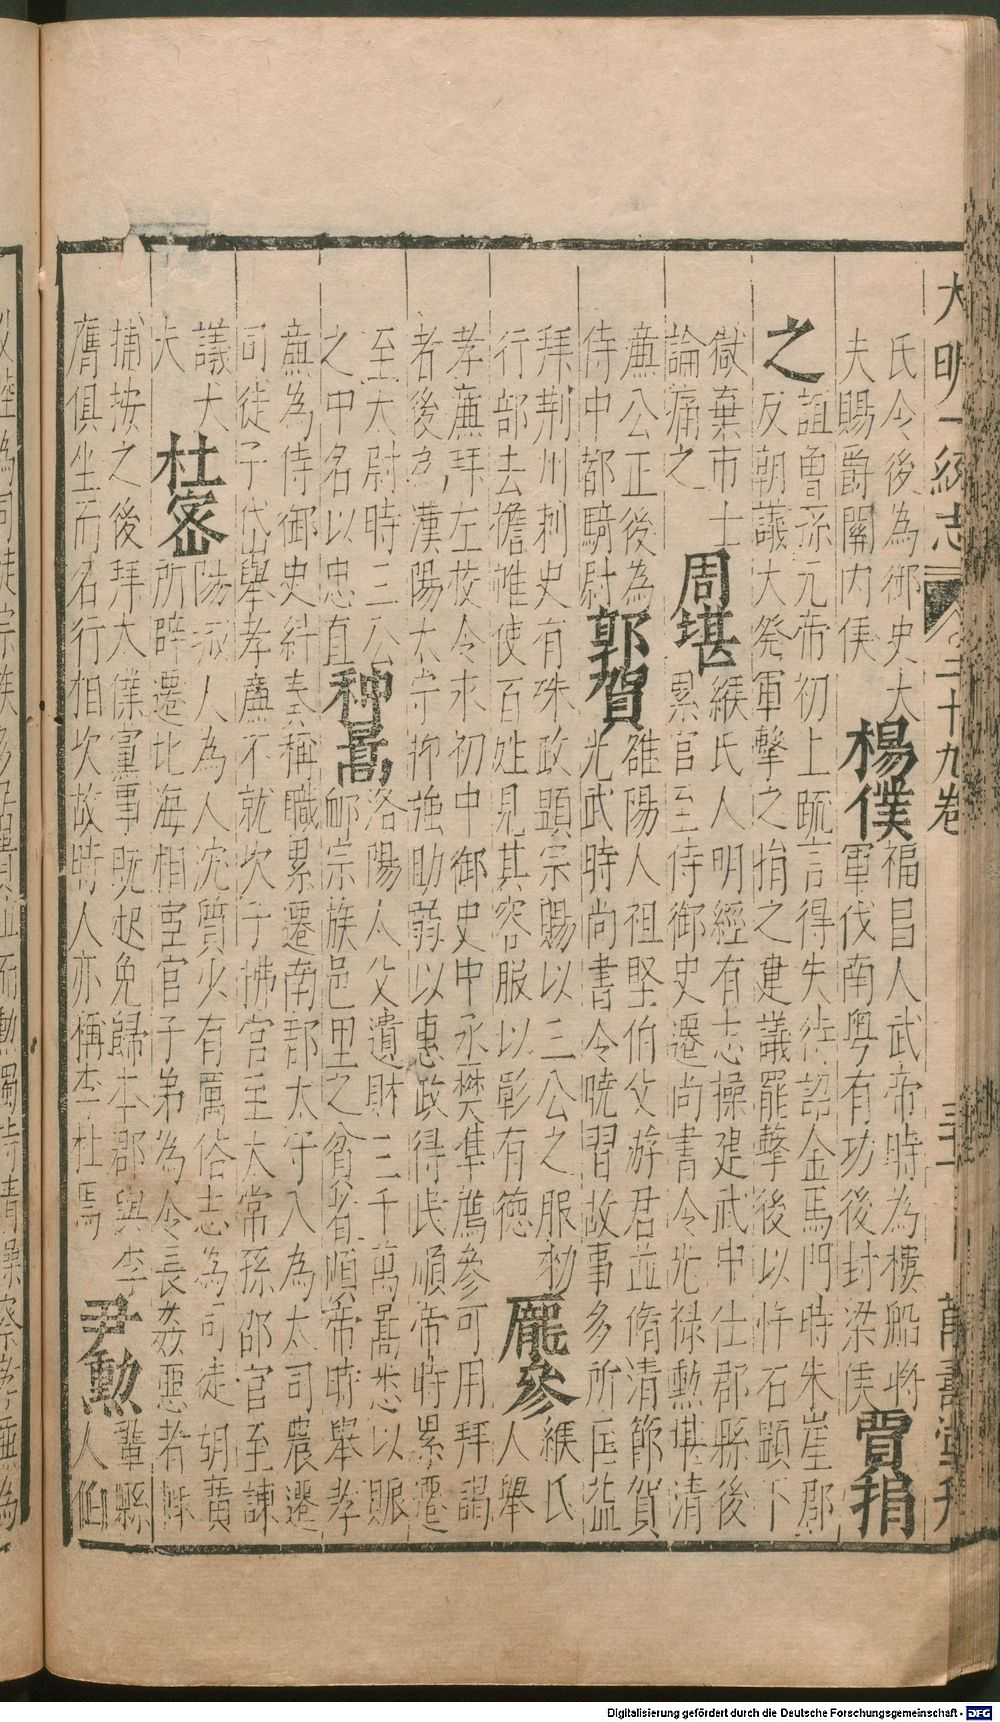 大明一統志 二十九卷 萬壽堂刊
氏令後為御史大
夫賜爵關內侯
楊僕
福昌人武帝時為樓船將
軍伐南粤有功後封梁侯
賈捐
之
誼曾孫元帝初上疏言得失待詔金馬門時朱崖郡
反朝議大發軍擊之捐之建議罷擊後以忤石顯下
獄棄市士
論痛之
周堪
緱氏人明經有志操建武中仕郡縣後
累官至侍御史遷尚書令光祿勳堪清
廉公正後為
侍中都騎尉
郭賀
雒陽人祖堅伯父游君並脩清節賀
光武時尚書令曉習故事多所匡益
拜荆州刺史有殊政顯宗賜以三公之服勑
行部去襜帷使百姓見其容服以彰有德
龐參
緱氏
人舉
孝廉拜左校令永初中御史中丞樊準薦參可用拜謁
者後為漢陽太守抑強助弱以惠政得民順帝時累遷
至太尉時三公
之中名以忠直
种暠
洛陽人父遺財三千萬暠悉以賑
卹宗族邑里之貧者順帝時舉孝
廉為侍御史糾奏稱職累遷南郡太守入為太司農遷
司徒子岱舉孝廉不就次子拂官至大常孫邵官至諫
議大
夫
杜密
陽城人為人沈質少有厲俗志為司徒胡廣
所辟遷北海相宦官子弟為令長姦惡者輒
捕按之後拜太僕黨事既起免歸本郡與李
膺俱坐而名行相次故時人亦稱李杜焉
尹勳
鞏縣
人伯
Digitalisierung gefördert durch die Deutsche Forschungsgemeinschaft - DFG